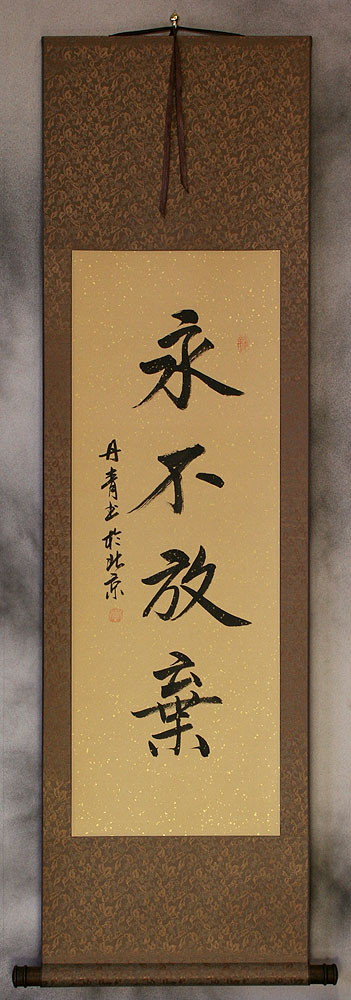 永不放棄
丹青书於北京